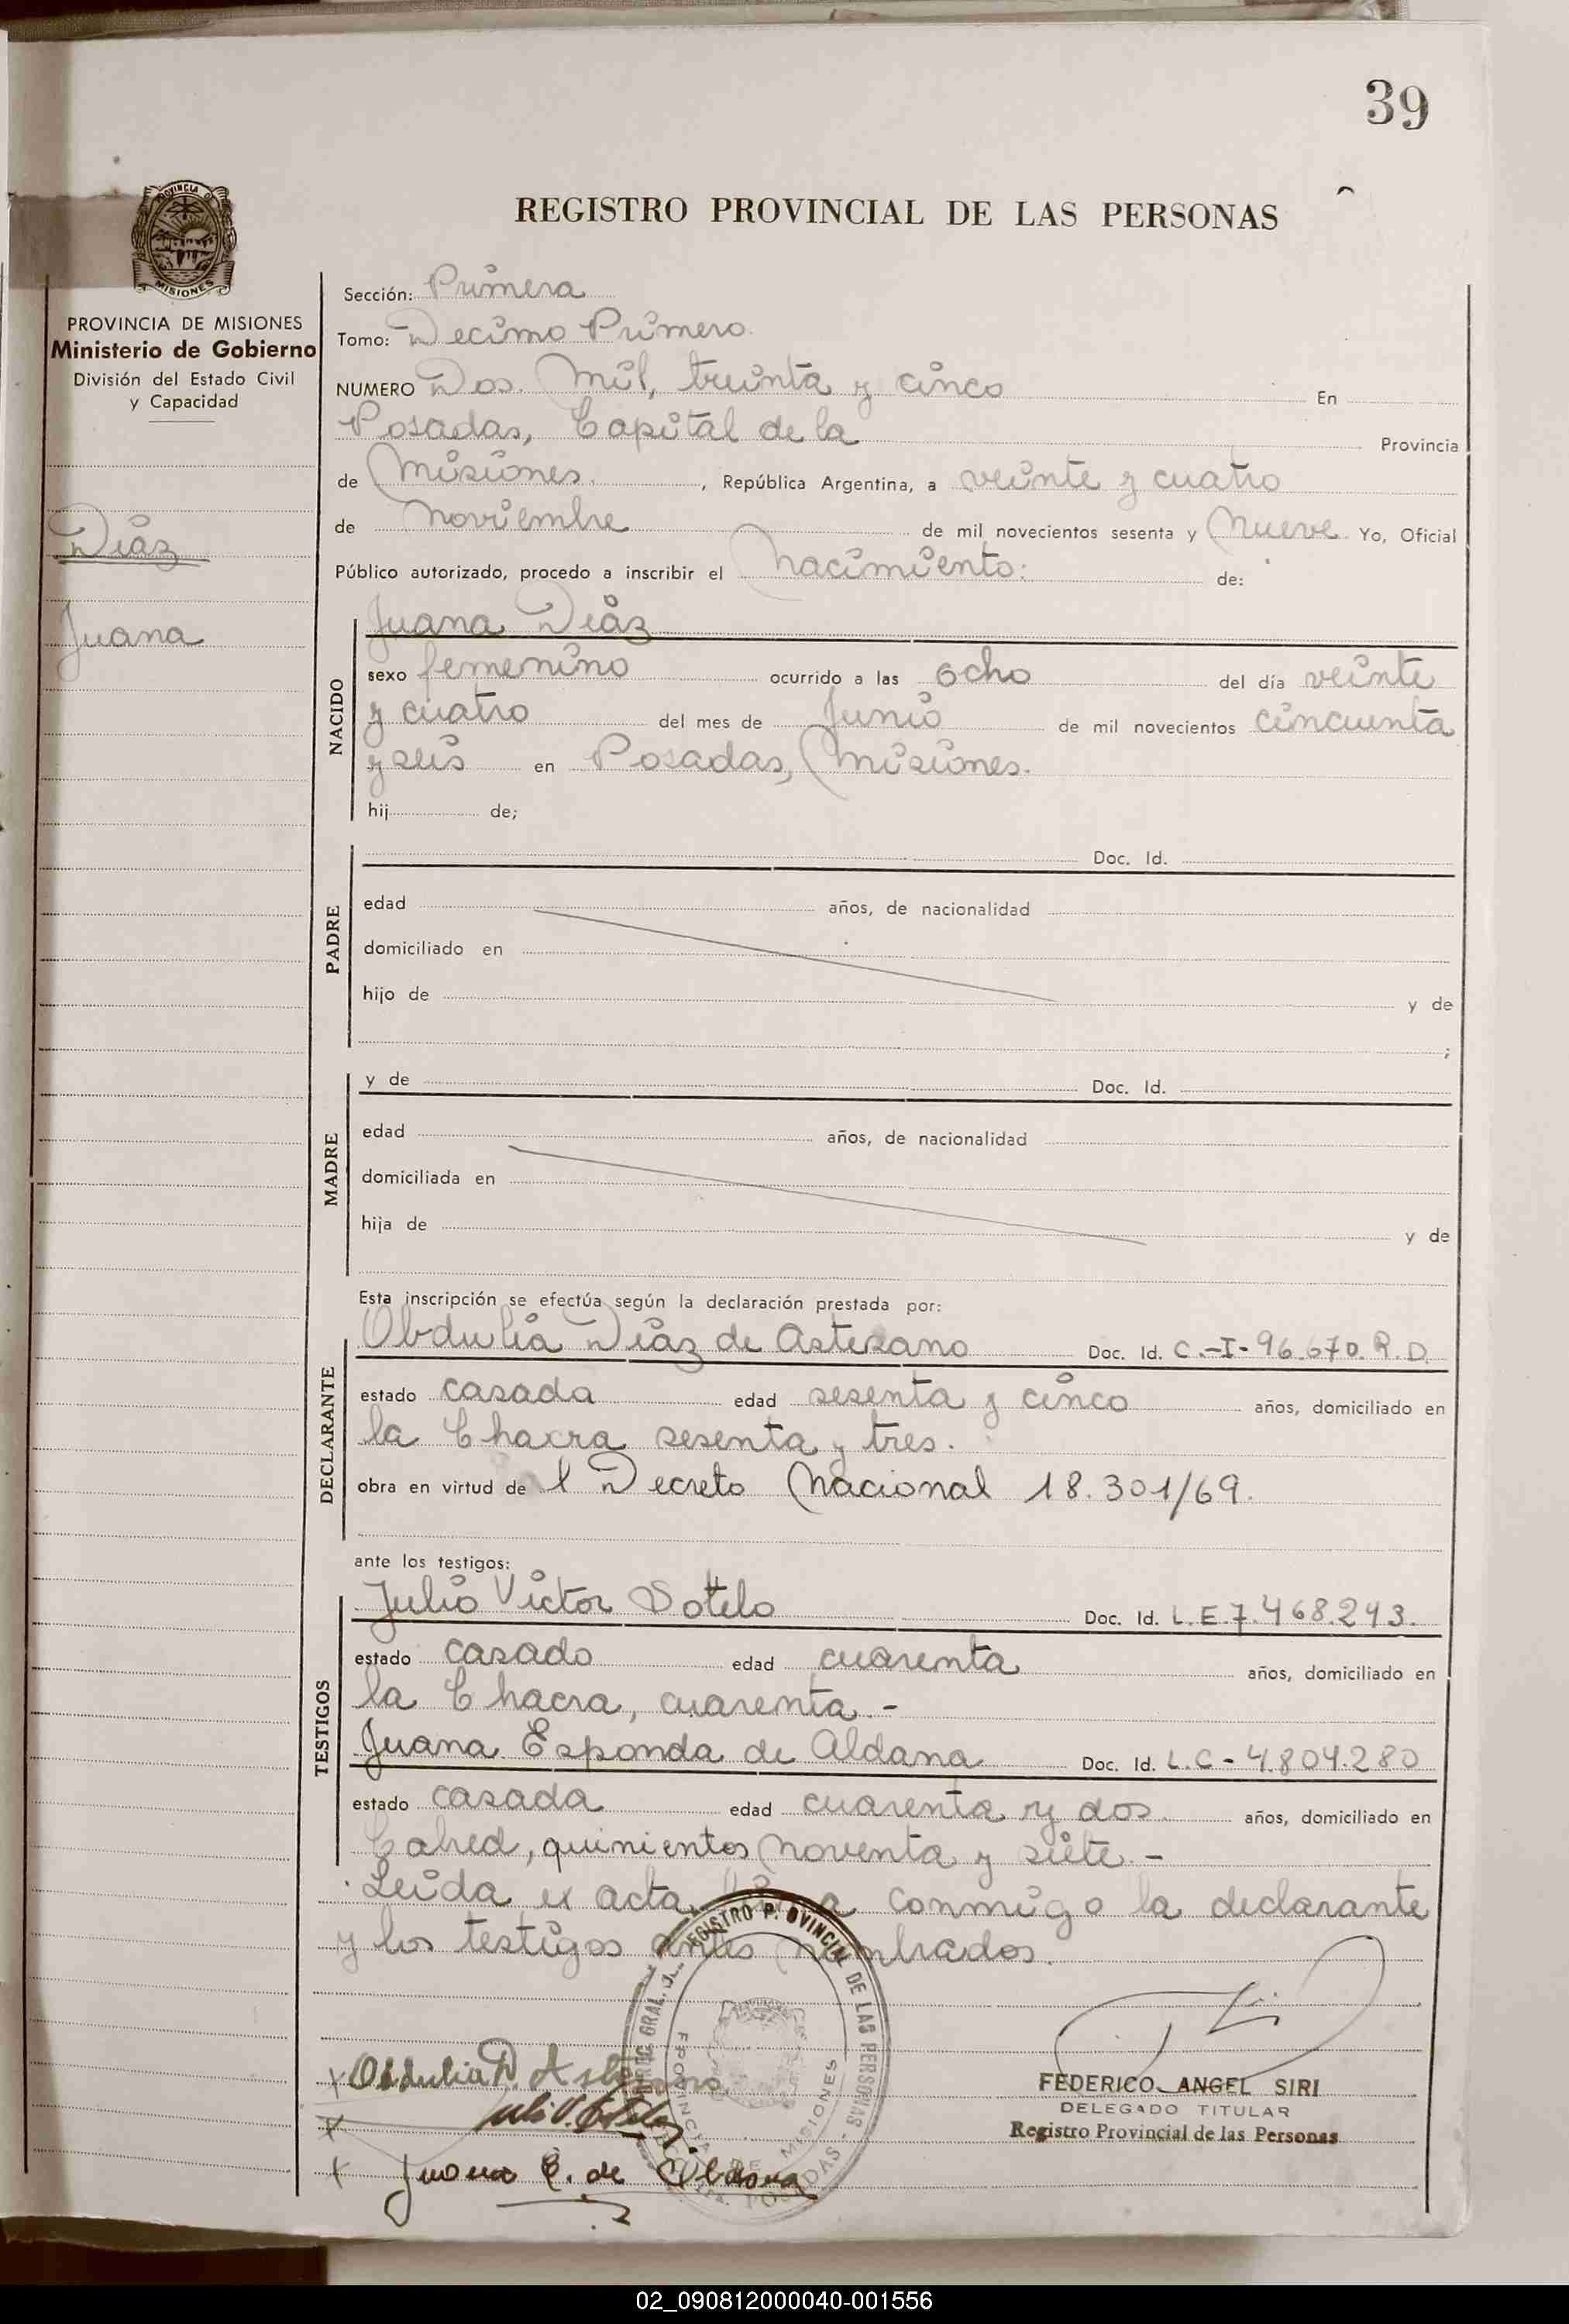 39
PROVINCIA DE
MISIONES
REGISTRO PROVINCIAL DE LAS PERSONAS
PROVINCIA DE MISIONES
Ministerio de Gobierno
División del Estado Civil
y Capacidad
Diaz
Juana
Sección: Primera
Tomo: Decimo Primero
NUMERO Dos Mil, treinta y cinco En
Posadas, Capital de la Provincia
de Misiones, República Argentina, a veinte y cuatro
de Noviembre de mil novecientos sesenta y Nueve Yo, Oficial
Público autorizado, procedo a inscribir el Nacimiento: de:
NACIDO
Juana Diaz
sexo femenino ocurrido a las ocho del día veinte
y cuatro del mes de Junio de mil novecientos cincuenta
y seis en Posadas, Misiones.
hij de;
PADRE
Doc. Id.
edad años, de nacionalidad
domiciliado en
hijo de y de
;
MADRE
y de Doc. Id.
edad años, de nacionalidad
domiciliada en
hija de y de
Esta inscripción se efectúa según la declaración prestada por:
DECLARANTE
Obdulia Diaz de Astesano Doc. Id. C.-I-96.670.R.D.
estado casada edad sesenta y cinco años, domiciliado en
la Chacra sesenta y tres.
obra en virtud de l Decreto Nacional 18.301/69.
ante los testigos:
TESTIGOS
Julio Victor Sottelo Doc. Id. L.E.7.468.243.
estado casado edad cuarenta años, domiciliado en
la Chacra, cuarenta.-
Juana Esponda de Aldana Doc. Id. L.C-4.804.280
estado casada edad cuarenta y dos años, domiciliado en
Cahed, quinientos noventa y siete.-
Leida el acta, conmigo la declarante
y los testigos antes nombrados.
REGISTRO PROVINCIAL DE LAS PERSONAS - POSADAS
PROVINCIA DE MISIONES
Obdulia D. Astesano
Juana E. de Aldana
FEDERICO ANGEL SIRI
DELEGADO TITULAR
Registro Provincial de las Personas
02_090812000040-001556